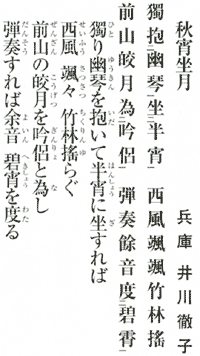 秋宵坐月　兵庫 井川徹子
獨抱幽琴坐半宵　西風颯颯竹林搖
前山皎月為吟侶　彈奏餘音度碧霄
獨り幽琴を抱いて半宵に坐すれば
西風 颯々 竹林搖らぐ
前山の皎月を吟侶と為し
弾奏すれば余音 碧宵を度る